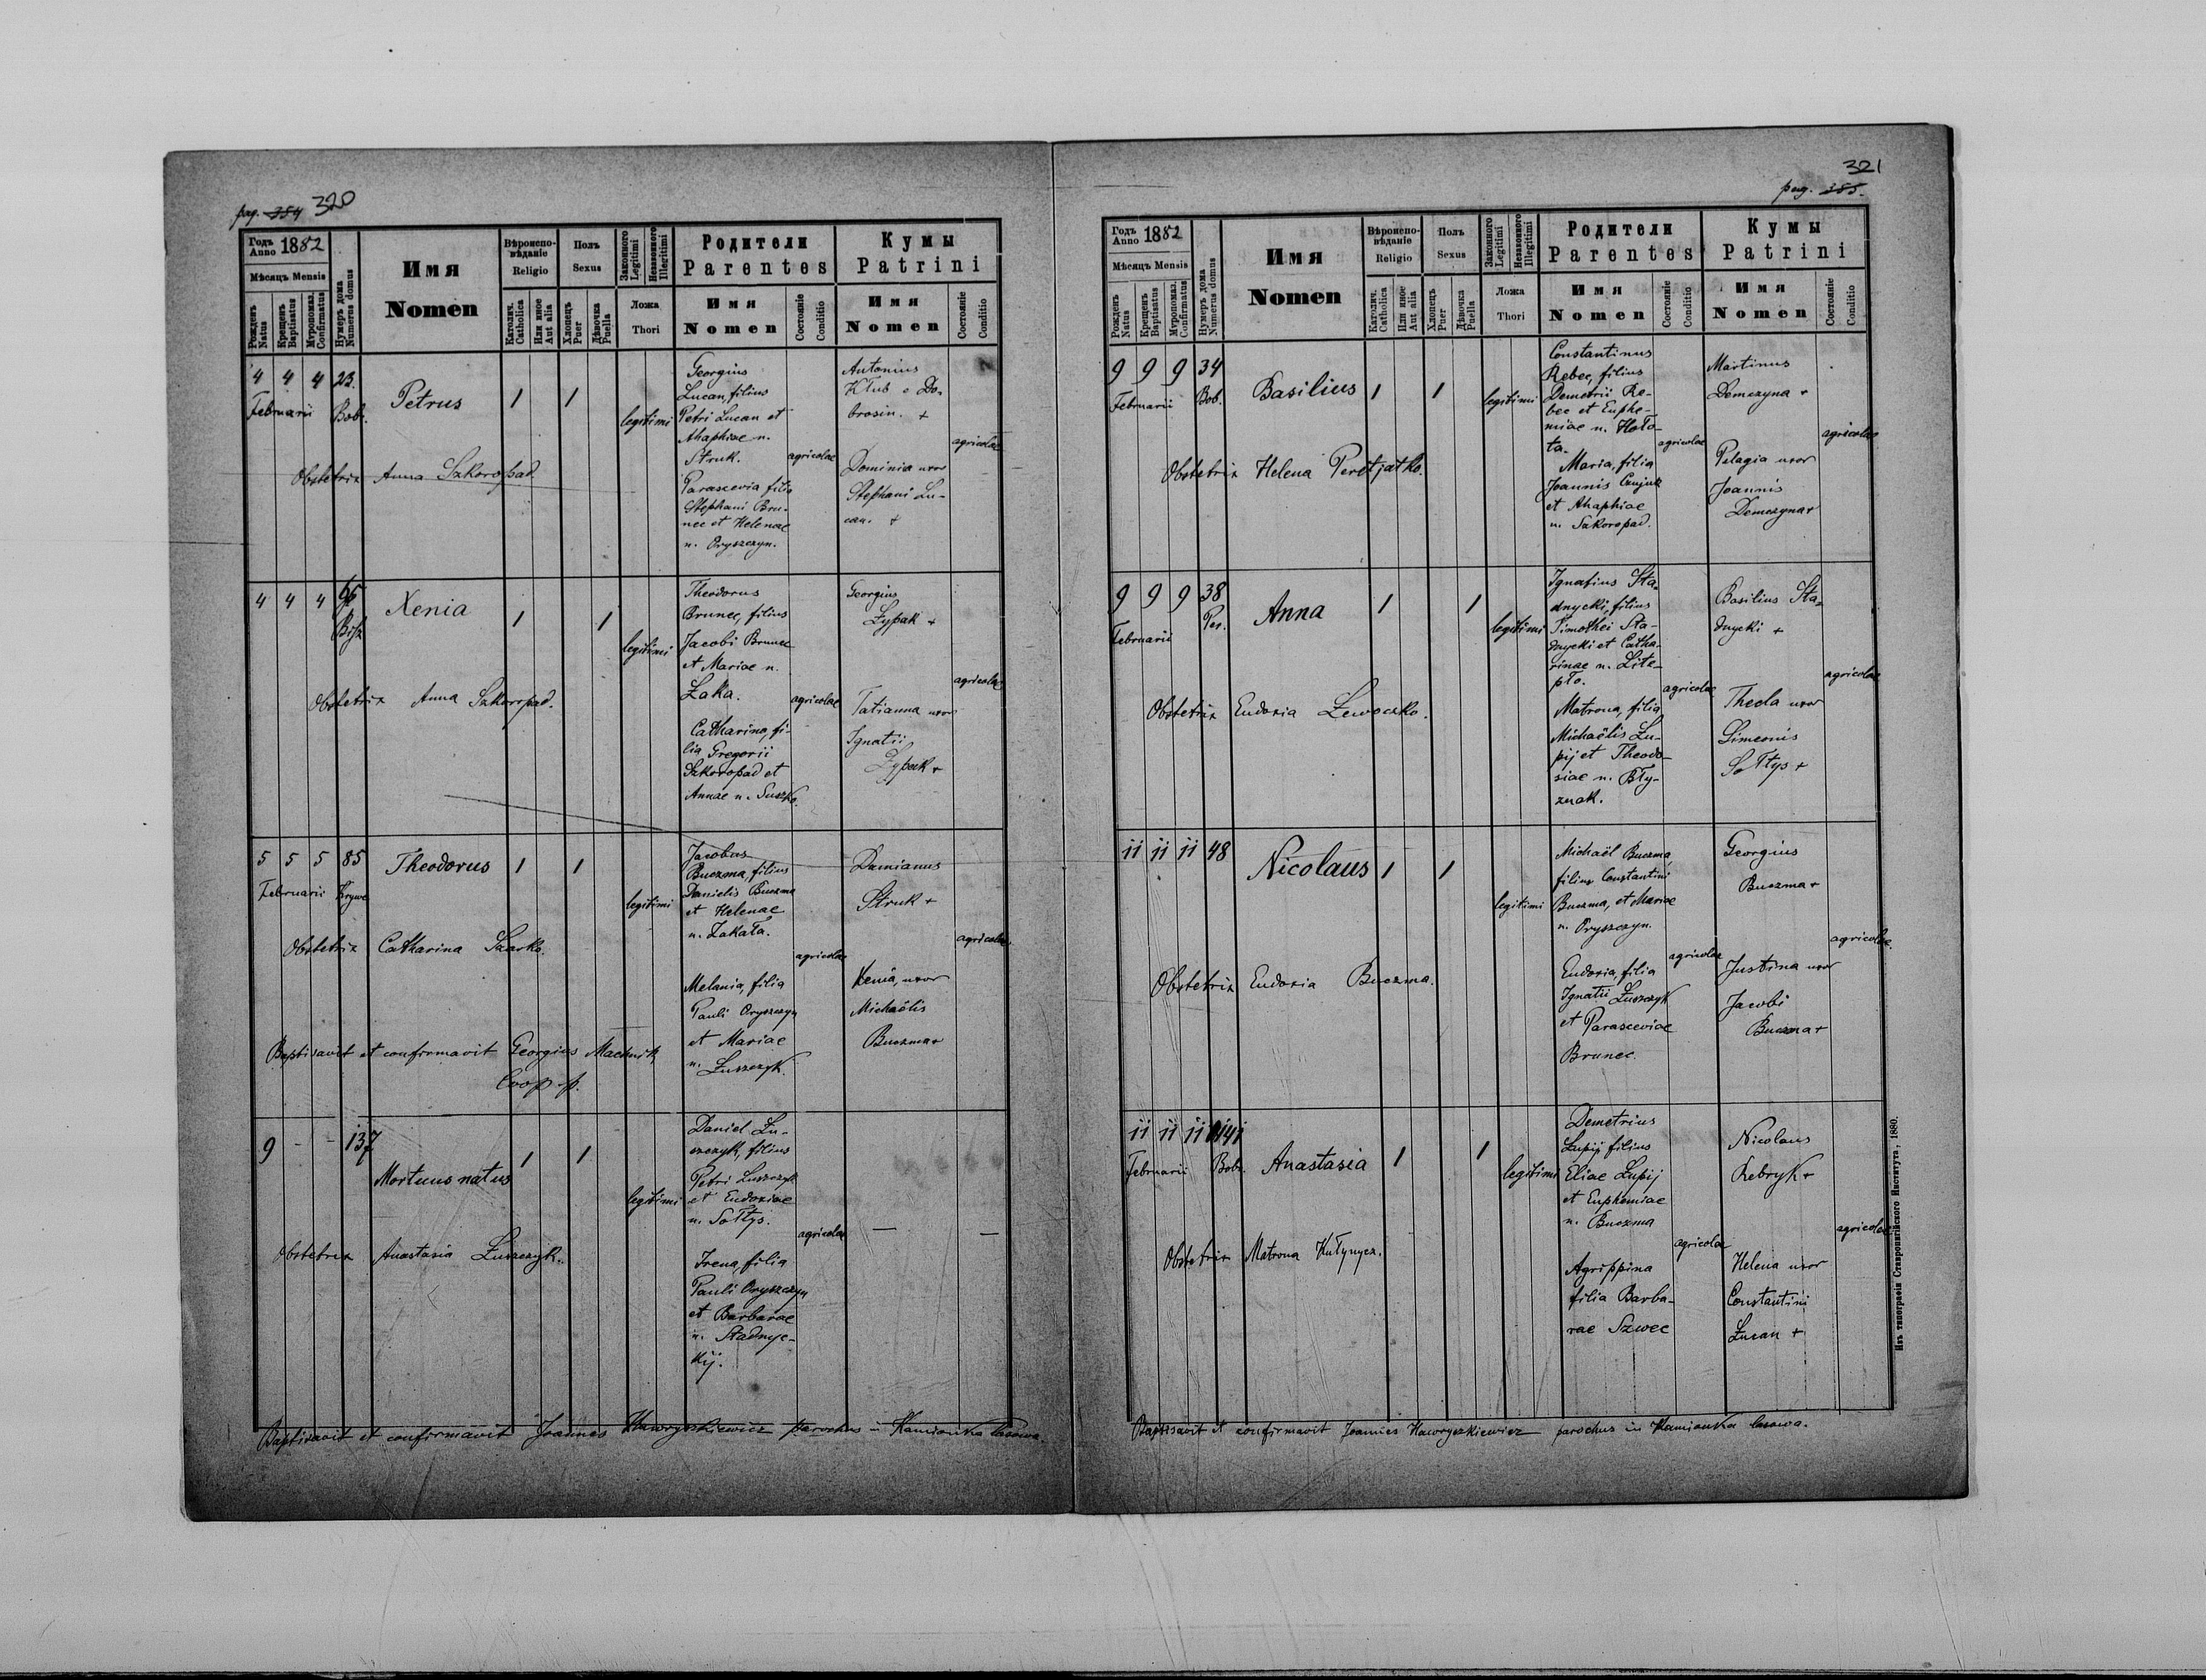 pag. 354 320
Годъ Anno 1882
Мѣсяцъ Mensis
Рожденъ Natus
Крещенъ Baptisatus
Мvропомаз. Confirmatus
Нумеръ дома Numerus domus
Имя Nomen
Вѣроисповѣданіе Religio
Католич. Catholica
Или иное Aut alia
Полъ Sexus
Хлопецъ Puer
Дѣвочка Puella
Законного Legitimi
Незаконного Illegitimi
Ложа Thori
Родители Parentes
Имя Nomen
Состояніе Conditio
Кумы Patrini
Имя Nomen
Состояніе Conditio
4 4 4 23.
Februarii Bob.
Petrus 1 1
legitimi
Georgius
Lucan, filius
Petri Lucan et
Ahaphiae n.
Struk.
Parascevia filia
Stephani Bru-
nec et Helenae
n. Oryszczyn.
agricolae
Antonius
Kłub e Do-
brosin. +
Dominia uxor
Stephani Lu-
can. +
agricolae
Obstetrix Anna Szkoropad
4 4 4
Xenia 1 1
legitimi
Theodorus
Brunec, filius
Jacobi Brunec
et Mariae n.
Łaka.
Catharina, fi-
lia Gregorii
Szkoropad et
Annae n. Suszko.
agricolae
Georgius
Łypak +
Tatianna uxor
Ignatii
Łypak +
agricolae
Obstetrix Anna Szkoropad.
5 5 5 85
Februarii
Theodorus 1 1
legitimi
Jacobus
Buczma, filius
Danielis Buczma
et Helenae
n. Zakała.
Melania, filia
Pauli Oryszczyn
et Mariae
n. Łuszczyk.
agricolae
Damianus
Struk +
Xenia, uxor
Michaëlis
Buczma+
agricolae
Obstetrix Catharina Szarko.
Baptisavit et confirmavit Georgius Machnik
Coop. p.
9 - - 137
Mortuus natus 1 1
legitimi
Daniel Łu-
szczyk, filius
Petri Łuszczyk
et Eudoxiae
n. Sołtys.
Irena, filia
Pauli Oryszczyn
et Barbarae
n. Stadnyc-
kij.
agricolae
— —
Obstetrix Anastasia Łuszczyk.
Baptisavit et confirmavit Joannes Hawryszkiewicz parochus in Kamionka lasowa.
321
pag. 355.
Годъ Anno 1882
Мѣсяцъ Mensis
Рожденъ Natus
Крещенъ Baptisatus
Мvропомаз. Confirmatus
Нумеръ дома Numerus domus
Имя Nomen
Вѣроисповѣданіе Religio
Католич. Catholica
Или иное Aut alia
Полъ Sexus
Хлопецъ Puer
Дѣвочка Puella
Законного Legitimi
Незаконного Illegitimi
Ложа Thori
Родители Parentes
Имя Nomen
Состояніе Conditio
Кумы Patrini
Имя Nomen
Состояніе Conditio
9 9 9 34
Februarii Bob.
Basilius 1 1
legitimi
Constantinus
Rebec, filius
Demetrii Re-
bec et Euphe-
miae n. Hoło-
ta.
Maria, filia
Joannis
et Ahaphiae
n. Szkoropad.
agricolae
Martinus
Demczyna +
Pelagia uxor
Joannis
Demczyna+
agricolae
Obstetrix Helena Peretjatko.
9 9 9 38
Februarii Per.
Anna 1 1
legitimi
Ignatius Sta-
dnycki, filius
Timothei Sta-
dnycki et Catha-
rinae n. Lite-
pło.
Matrona, filia
Michaëlis Łu-
pij et Theodo-
siae n. Bły-
znak.
agricolae
Basilius Sta-
dnycki +
Thecla uxor
Simeonis
Sołtys +
agricolae
Obstetrix Eudoxia Lewoczko.
11 11 11 48
Nicolaus 1 1
legitimi
Michaël Buczma,
filius Constantini
Buczma, et Mariae
n. Oryszczyn.
Eudoxia, filia
Ignatii Łuszczyk
et Parasceviae
Brunec.
agricolae
Georgius
Buczma+
Justina uxor
Jacobi
Buczma+
agricolae.
Obstetrix Eudoxia Buczma.
11 11 11 141
Februarii Bob.
Anastasia 1 1
legitimi
Demetrius
Łupij filius
Eliae Łupij
et Euphemiae
n. Buczma
Agrippina
filia Barba-
rae Szwec
agricolae
Nicolaus
Kebryk+
Helena uxor
Constantini
Łucan +
agricolae
Obstetrix Matrona Kułynycz.
Baptisavit et confirmavit Joannes Hawryszkiewicz parochus in Kamionka lasowa.
Изъ типографіи Ставропигійского Института, 1880.